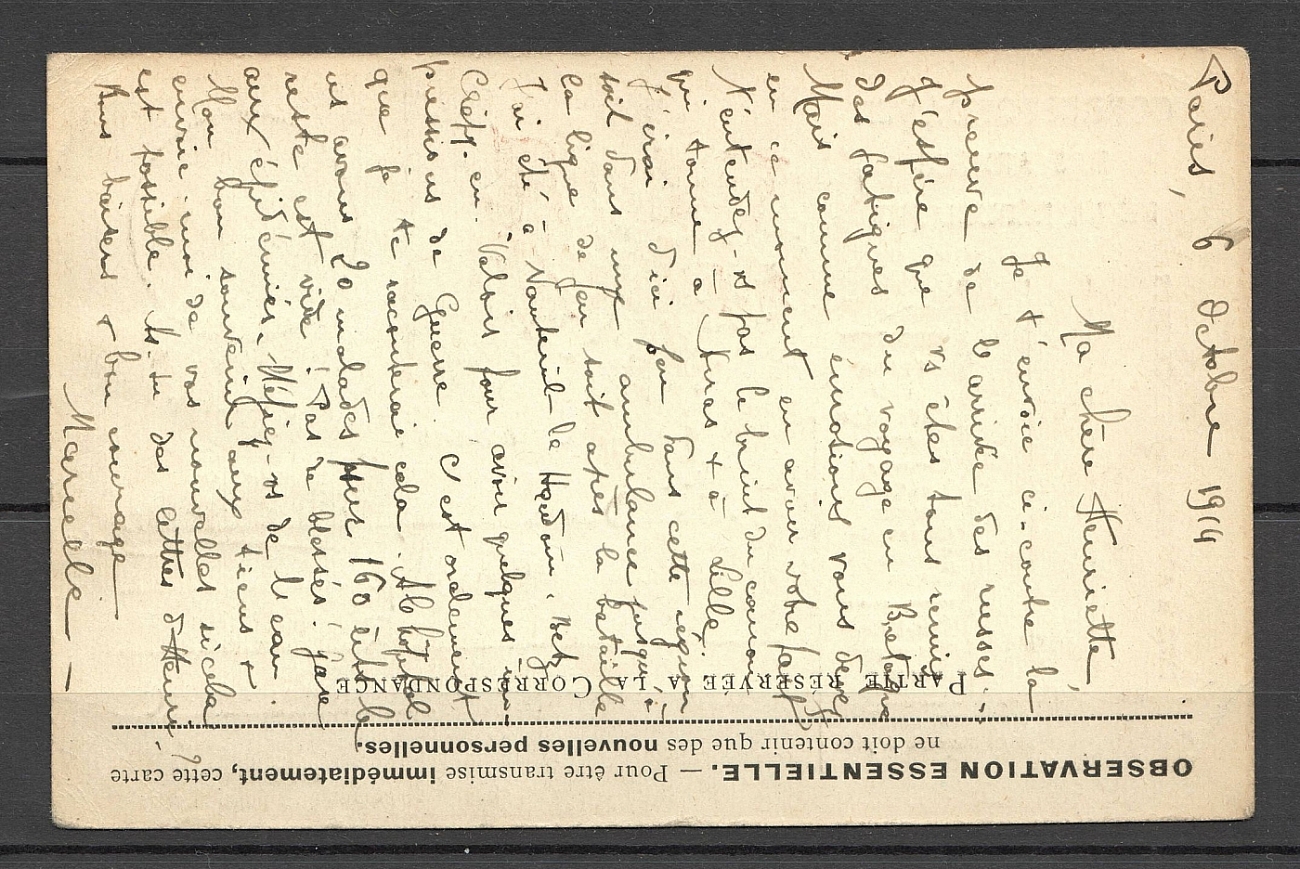 Paris, 6 Octobre 1914
Ma chère Henriette,
Je t'envoie ci-contre la
preuve de l'arrivée des russes.
J'espère que vs êtes tous remis
des fatigues du voyage en Bretagne
Mais comme émotions vous devez
en ce moment en avoir votre part
N'entendez-vs pas le bruit du canon
qui tonne à Arras & à Lille.
J'irai d'ici peu dans cette région
soit dans une ambulance jusqu'à
la ligne de feu soit après la bataille
J'ai été à Nanteuil-le Hadouin, Betz
Crépy-en-Valois pour avoir quelques im-
pressions de Guerre. C'est oralement
que je te raconterai cela. A l'hôpital
ns avons 20 malades pour 160 lits le
reste est vide. Pas de blessés. Gare
aux épidémies. Méfiez-vs de l'eau.
Mon bon souvenir aux tiens &
envoie-moi de vos nouvelles si cela
est possible. As-tu des lettres d'Henri ?
Bons baisers & bon courage
Marcelle
PARTIE RÉSERVÉE A LA CORRESPONDANCE
OBSERVATION ESSENTIELLE. — Pour être transmise immédiatement, cette carte
ne doit contenir que des nouvelles personnelles.